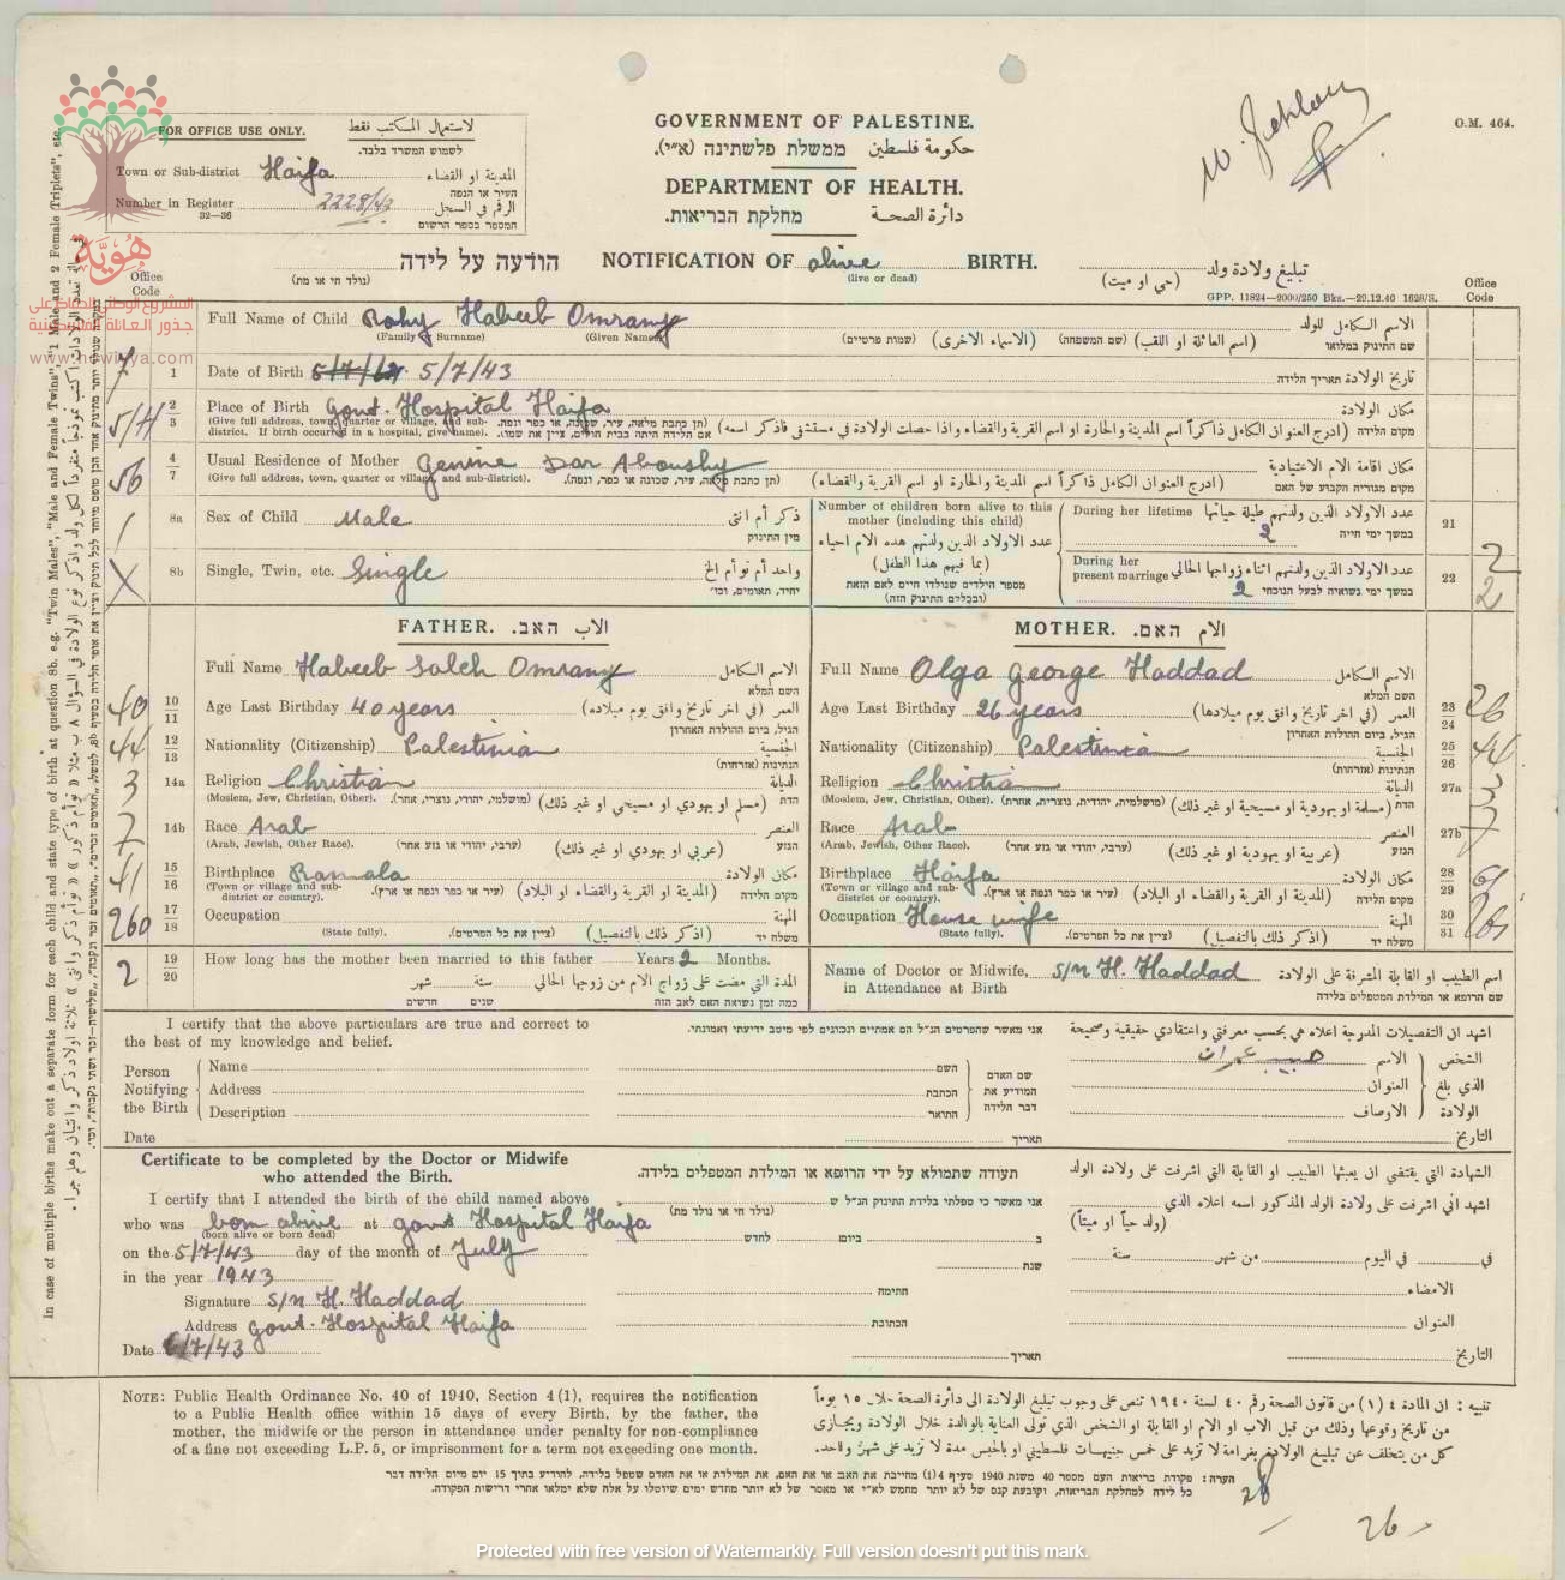 FOR OFFICE USE ONLY. لاستعمال المكتب فقط
לשמוש המשרד בלבד.
Town or Sub-district Haifa المدينة او القضاء
העיר או הנפה
Number in Register 2228/43 الرقم في السجل
32—36
המספר בספר הרשום
GOVERNMENT OF PALESTINE.
حكومة فلسطين ממשלת פלשתינה (א״י).
DEPARTMENT OF HEALTH.
دائرة الصحة מחלקת הבריאות.
O.M. 464.
هُويَّة
المشروع الوطني للحفاظ على
جذور العائلة الفلسطينية
www.howiyya.com
הודעה על לידה NOTIFICATION OF alive BIRTH. تبليغ ولادة ولد
(נולד חי או מת) (live or dead) (حي او ميت)
GPP. 11824—2000/250 Bks.—20.12.40 1628/S.
Office Code
Office Code
Full Name of Child Rohy Habeeb Omrany الاسم الكامل للولد
(Family or Surname) (Given Names) (שמות פרטיים) (الاسماء الاخرى) (שם המשפחה) (اسم العائلة او اللقب) שם התינוק במלואו
1 Date of Birth 5/7/43 تاريخ الولادة תאריך הלידה
2 3 Place of Birth Govt. Hospital Haifa مكان الولادة
(Give full address, town, quarter or village, and sub-district. If birth occurred in a hospital, give name). (תן כתבת מלאה, עיר, שכונה, או כפר ונפה. אם הלידה היתה בבית חולים, ציין את שמו). (ادرج العنوان الكامل ذاكراً اسم المدينة والحارة او اسم القرية والقضاء واذا حصلت الولادة في مستشفى فاذكر اسمه) מקום הלידה
5/H
4 7 Usual Residence of Mother Genine Dar Aboushy مكان اقامة الام الاعتيادية
(Give full address, town, quarter or village, and sub-district). (תן כתבת מלאה, עיר, שכונה או כפר, ונפה). (ادرج العنوان الكامل ذاكراً اسم المدينة والحارة او اسم القرية والقضاء) מקום מגוריה הקבוע של האם
56
8a Sex of Child Male ذكر أم انثى
מין התינוק
1
8b Single, Twin, etc. Single واحد أم توأم الخ
יחיד, תאומים, וכו׳
X
Number of children born alive to this mother (including this child)
عدد الاولاد الذين ولدتهم هذه الام احياء
(بما فيهم هذا الطفل)
מספר הילדים שנולדו חיים לאם הזאת
(ובכללם התינוק הזה)
During her lifetime عدد الاولاد الذين ولدتهم طيلة حياتها 21
2 במשך ימי חייה
2
During her present marriage عدد الاولاد الذين ولدتهم اثناء زواجها الحالي 22
2 במשך ימי נשואיה לבעל הנוכחי
2
FATHER. الاب האב.
Full Name Habeeb Saleh Omrany الاسم الكامل
השם המלא
40 10 11 Age Last Birthday 40 years العمر (في اخر تاريخ وافق يوم ميلاده)
הגיל, ביום ההולדת האחרון
44 12 13 Nationality (Citizenship) Palestinia الجنسية
הנתינות (אזרחות)
3 14a Religion Christia الديانة
(Moslem, Jew, Christian, Other). (מושלמי, יהודי, נוצרי, אחר). (مسلم او يهودي او مسيحي او غير ذلك) הדת
7 14b Race Arab العنصر
(Arab, Jewish, Other Race). (ערבי, יהודי או גזע אחר) (عربي او يهودي او غير ذلك) הגזע
41 15 16 Birthplace Ramala مكان الولادة
(Town or village and sub-district or country). (עיר או כפר ונפה או ארץ). (المدينة او القرية والقضاء او البلاد) מקום הלידה
260 17 18 Occupation المهنة
(State fully). (ציין את כל הפרטים). (اذكر ذلك بالتفصيل) משלח יד
MOTHER. الام האם.
Full Name Olga George Haddad الاسم الكامل
השם המלא
Age Last Birthday 26 years العمر (في اخر تاريخ وافق يوم ميلادها) 23 24 26
הגיל, ביום ההולדת האחרון
Nationality (Citizenship) Palestinia الجنسية 25 26 44
הנתינות (אזרחות)
Religion Christia الديانة 27a 3
(Moslem, Jew, Christian, Other). (מושלמית, יהודית, נוצרית, אחרת). (مسلمة او يهودية او مسيحية او غير ذلك) הדת
Race Arab العنصر 27b 7
(Arab, Jewish, Other Race). (ערביה, יהודי או גזע אחר) (عربية او يهودية او غير ذلك) הגזע
Birthplace Haifa مكان الولادة 28 29 61
(Town or village and sub-district or country). (עיר או כפר ונפה או ארץ). (المدينة او القرية والقضاء او البلاد) מקום הלידה
Occupation House wife المهنة 30 31
(State fully). (ציין את כל הפרטים). (اذكر ذلك بالتفصيل) משלח יד
2 19 20 How long has the mother been married to this father Years 2 Months.
المدة التي مضت على زواج الام من زوجها الحالي سنة شهر
כמה זמן נשואה האם לאב הזה שנים חדשים
Name of Doctor or Midwife, in Attendance at Birth S/N H. Haddad اسم الطبيب او القابلة المشرفة على الولادة
שם הרופא או המילדת המטפלים בלידה
I certify that the above particulars are true and correct to the best of my knowledge and belief.
אני מאשר שהפרטים הנ״ל הם אמתיים ונכונים לפי מיטב ידיעתי ואמונתי.
اشهد ان التفصيلات المدوجة اعلاه هي بحسب معرفتي واعتقادي حقيقية وصحيحة
Person Notifying the Birth
Name
Address
Description
Date
השם
הכתבת
התואר
שם האדם המודיע את דבר הלידה
תאריך
الشخص الذي بلغ الولادة
الاسم حبيب عمران
العنوان
الاوصاف
التاريخ
Certificate to be completed by the Doctor or Midwife
who attended the Birth.
I certify that I attended the birth of the child named above
who was born alive at Govt Hospital Haifa
(born alive or born dead)
on the 5/7/43 day of the month of July
in the year 1943
Signature S/N H. Haddad
Address Govt. Hospital Haifa
Date 6/7/43
תעודה שתמולא על ידי הרופא או המילדת המטפלים בלידה.
אני מאשר כי טפלתי בלידת התינוק הנ״ל ש
(נולד חי או נולד מת)
ב ביום לחדש
שנת
החתימה
הכתובת
תאריך
الشهادة التي يقتضي ان يعبئها الطبيب او القابلة التي اشرفت على ولادة الولد
اشهد اني اشرفت على ولادة الولد المذكور اسمه اعلاه الذي
(ولد حياً او ميتاً)
في في اليوم من شهر سنة
الامضاء
العنوان
التاريخ
NOTE: Public Health Ordinance No. 40 of 1940, Section 4(1), requires the notification
to a Public Health office within 15 days of every Birth, by the father, the
mother, the midwife or the person in attendance under penalty for non-compliance
of a fine not exceeding L.P. 5, or imprisonment for a term not exceeding one month.
تنبيه : ان المادة ٤ (١) من قانون الصحة رقم ٤٠ لسنة ١٩٤٠ تنص على وجوب تبليغ الولادة الى دائرة الصحة خلال ١٥ يوماً
من تاريخ وقوعها وذلك من قبل الاب او الام او القابلة او الشخص الذي تولى العناية بالوالدة خلال الولادة ويجازى
كل من يتخلف عن تبليغ الولادة بغرامة لا تزيد على خمس جنيهات فلسطيني او بالحبس مدة لا تزيد على شهر واحد.
הערה: פקודת בריאות העם מספר 40 משנת 1940 סעיף 4(1) מחייבת את האב או את האם, את המילדת או את האדם שטפל בלידה, להודיע בתוך 15 יום מיום הלידה דבר
כל לידה למחלקת הבריאות, וקובעת קנס של לא יותר מחמש לא״י או מאסר של לא יותר מחדש ימים שיוטלו על אלה שלא ימלאו אחרי דרישות הפקודה.
28
26
In case of multiple births make out a separate form for each child and state type of birth at question 8b, e.g. "Twin Males", "Male and Female Twins", "1 Male and 2 Female Triplets", etc.
Protected with free version of Watermarkly. Full version doesn't put this mark.